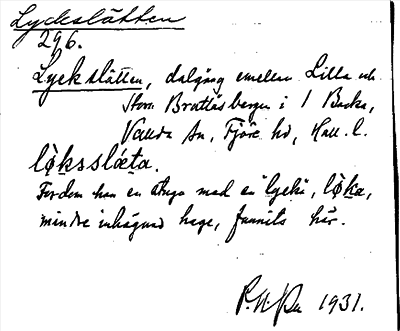 Lyckslätten
296.
Lyckslätten, dalgång emellan Lilla och
Stora Brattåsbergen i 1 Backa,
Vallda sn, Fjäre hd, Hall. l.
lø̀ksslæta.
Fordom har en stuga med en "lycka", lø̀ka,
mindre inhägnad hage, funnits här.
1931.